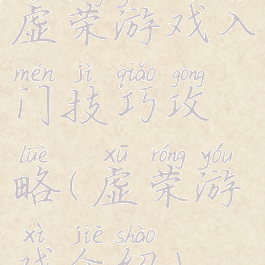 虚荣游戏入
mén jì qiǎo gōng
门技巧攻
lüè xū róng yóu
略(虚荣游
xì jiè shào
戏介绍)